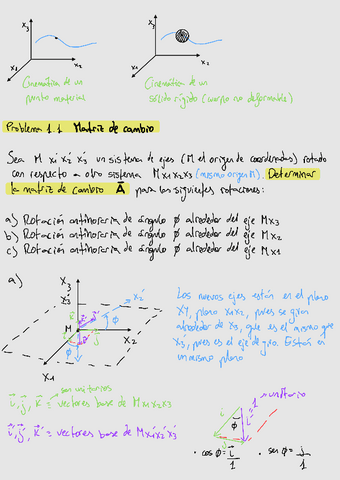 x3
x3
x1
x2
x1
x2
Cinemática de un
punto material
Cinemática de un
sólido rígido (cuerpo no deformable)
Problema 1.1 Matriz de cambio
Sea M x1' x2' x3' un sistema de ejes (M el origen de coordenadas) rotado
con respecto a otro sistema M x1 x2 x3 (mismo origen M). Determinar
la matriz de cambio Ā para las siguientes rotaciones:
a) Rotación antihoraria de ángulo φ alrededor del eje Mx3
b) Rotación antihoraria de ángulo φ alrededor del eje Mx2
c) Rotación antihoraria de ángulo φ alrededor del eje Mx1
a)
x3
x3'
x2'
M
φ
x2
x1
Los nuevos ejes están en el plano
XY, plano x1x2, pues se giran
alrededor de x3, que es el mismo que
x3', pues es el eje de giro. Están en
un mismo plano
son unitarios
i, j, k ≡ vectores base de M x1 x2 x3
i', j', k' ≡ vectores base de M x1' x2' x3'
unitario
φ
· cos φ = i/1
· sen φ = j/1